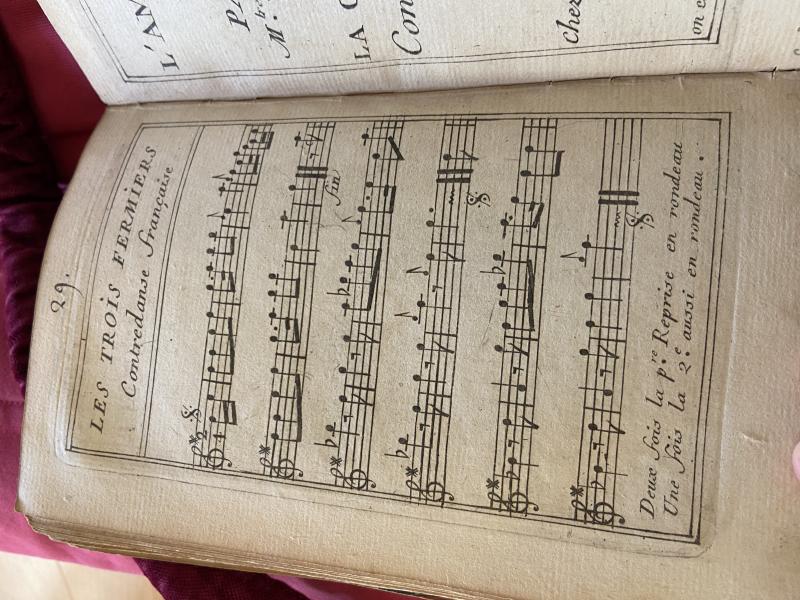 29.
LES TROIS FERMIERS
Contredanse française
2
4
fin
Deux fois la p.re Reprise en rondeau
Une fois la 2.e aussi en rondeau.
L'AN
LA C
Con
chez
on c